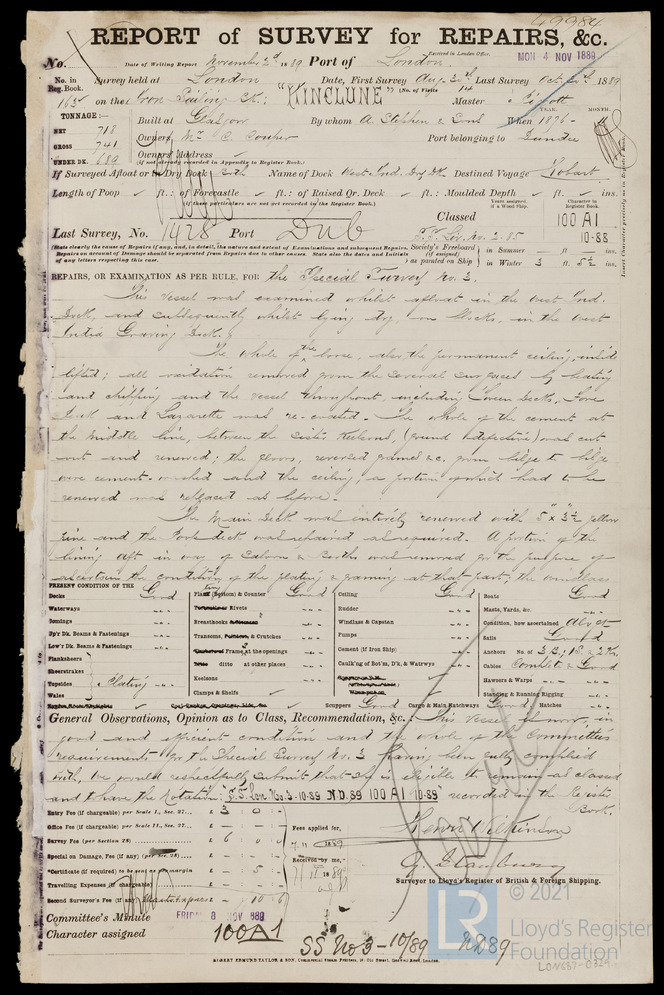 49984
REPORT of SURVEY for REPAIRS, &c.
No. Date of Writing Report November 2d 1889 Port of London. Received in London Office. MON 4 NOV 1889
No. in Reg. Book. Survey held at London Date, First Survey Aug Last Survey Oct 1889
(No. of Visits 14
on the Iron Sailing Bk: "KINCLUNE" Master
TONNAGE:— Built at Glasgow By whom A. Stephen & Sons When 1876
YEAR. MONTH.
NET 718
GROSS 741 Owners Mr C. Couper Port belonging to Dundee
UNDER DK. 689 Owners' Address
(if not already recorded in Appendix to Register Book.)
If Surveyed Afloat or in Dry Dock Both Name of Dock West Ind. Dry Dk. Destined Voyage Hobart
Length of Poop ft.: of Forecastle ft.: of Raised Qr. Deck ft.: Moulded Depth ft. ins.
(If these particulars are not yet recorded in the Register Book.)
Years assigned, if a Wood Ship. Character in Register Book.
Classed 100 A1
Last Survey, No. 1428 Port Dub 10-88
(State clearly the cause of Repairs if any, and, in detail, the nature and extent of Examinations and subsequent Repairs.
Repairs on account of Damage should be separated from Repairs due to other causes. State also the dates and Initials
of any letters respecting this case.
Society's Freeboard (if assigned) as painted on Ship } in Summer ft. ins.
in Winter 3 ft. 5½ ins.
Insert Character precisely as in Register Book.
REPAIRS, OR EXAMINATION AS PER RULE, FOR the Special Survey No. 3.
This vessel was examined whilst afloat in the West Ind.
Dock, and subsequently whilst lying dry on blocks, in the West
India Graving Dock.
The whole of the loose, also the permanent ceiling,
lifted; all oxidation removed from the several surfaces by beating
and chipping and the vessel throughout, including
and Lazarette was re-coated. The whole of the cement at
the middle line, between the sister keelsons, (found defective) was cut
out and renewed; the floors, reversed frames &c. from bilge to bilge
were cement-washed and the ceiling, a portion of which had to be
renewed was replaced as before.
The Main Deck was entirely renewed with 5" x 3½ yellow
pine and the Poop deck was repaired as required. A portion of the
lining aft in way of Saloon & Berths was removed for the purpose of
ascertain the condition of the plating & framing at that part; the windlass
PRESENT CONDITION OF THE
Decks Good
Waterways
Comings
Up'r Dk. Beams & Fastenings
Low'r Dk. Beams & Fastenings
Planksheers
Sheerstrakes
Topsides Plating
Wales
Plating (Bottom) & Counter Good
Rivets
Breasthooks
Transoms, & Crutches
Frames at the openings
ditto at other places
Keelsons
Clamps & Shelfs
Ceiling Good
Rudder
Windlass & Capstan
Pumps
Cement (if Iron Ship)
Caulk'ng of Bot'm, D'k, & Watrwys
Scuppers Good Cargo & Main Hatchways Good Hatches
Boats Good
Masts, Yards, &c.
Condition, how ascertained
Sails Good
Anchors No. of 3 B, 1 S. & 2 K.
Cables Complete & Good
Hawsers & Warps
Standing & Running Rigging
General Observations, Opinion as to Class, Recommendation, &c. This vessel is now, in
good and efficient condition and the whole of the Committee's
requirements for the Special Survey No. 3 having been fully complied
with, we would respectfully submit that she is eligible to remain as classed
and to have the Notation: "S.S. Lon. No. 3-10-89 N.D. 89 100 A1 10-89" recorded in the Register
Book.
Entry Fee (if chargeable) per Scale I., Sec. 27... £ 3 0
Office Fee (if chargeable) per Scale II., Sec. 27... £
Survey Fee (per Section 28) £ 6 0
Special or Damage, Fee (if any) (per Sec. 28) £
*Certificate (if required) to be sent as per margin £ - 5
Travelling Expenses (if chargeable) £
Second Surveyor's Fee (if any) £ 10
Fees applied for,
1889
Received by me,
1889
Henry Wilkinson
Surveyor to Lloyd's Register of British & Foreign Shipping.
Committee's Minute FRIDAY 8 NOV 889
Character assigned 100A1
SS No 3 - 10/89 ND89
ROBERT EDMUND TAYLOR & SON, Commercial Steam Printers, 19, Old Street, Goswell Road, London.
LR
© 2021
Lloyd's Register
Foundation
LON687-0329